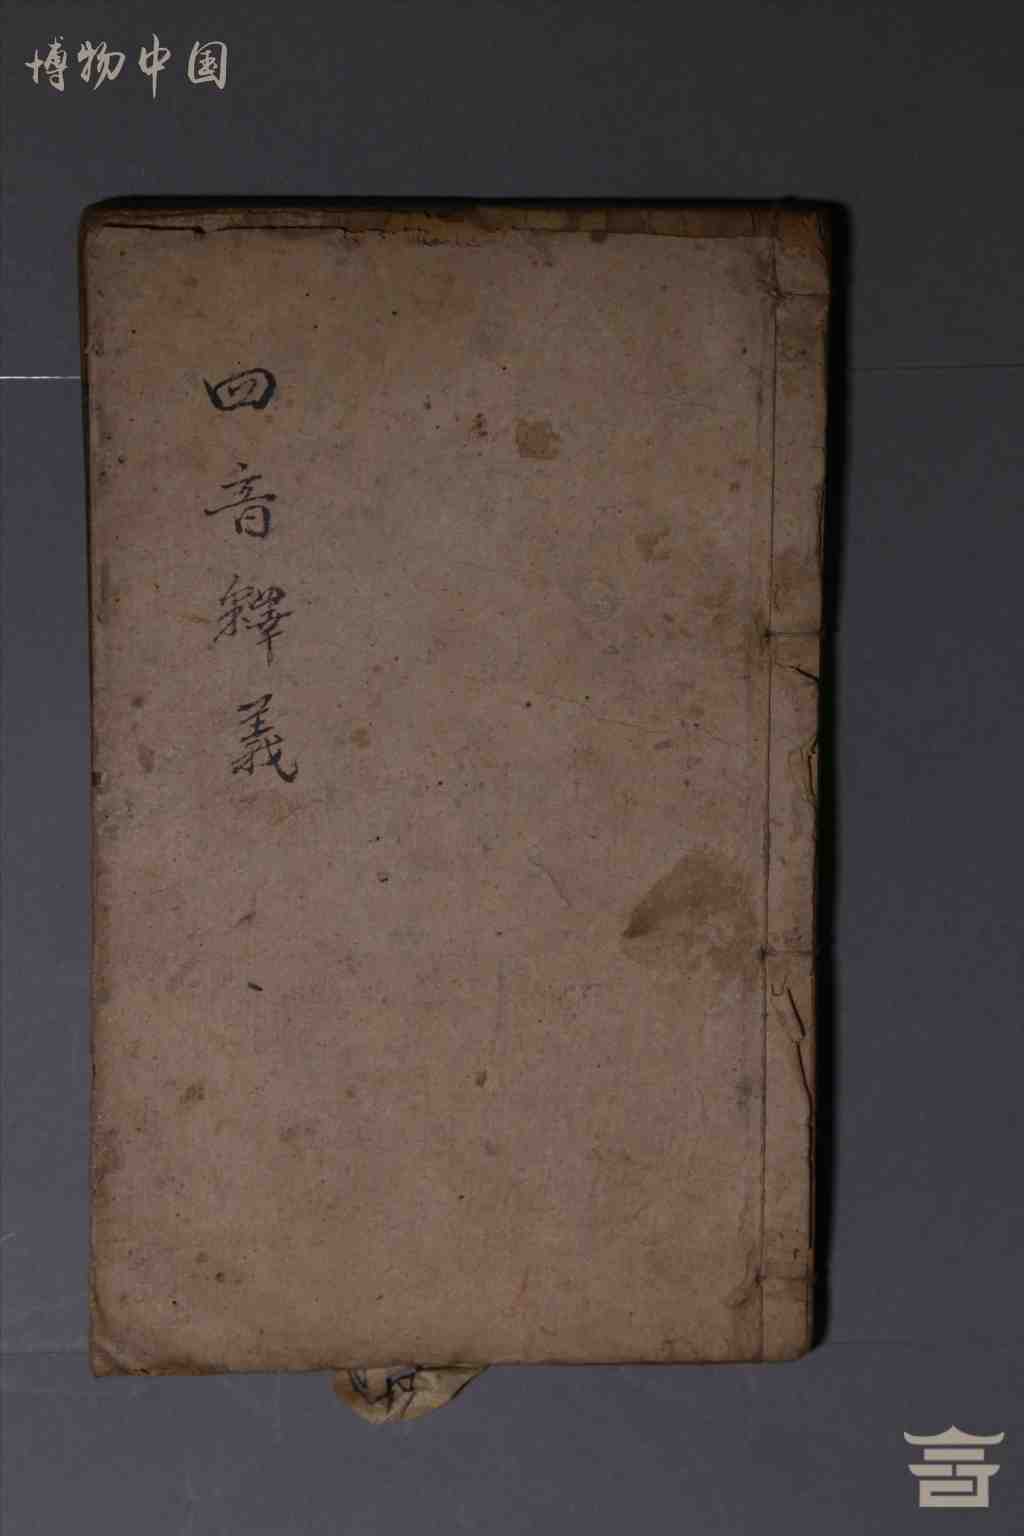 博物中国
四音釋義